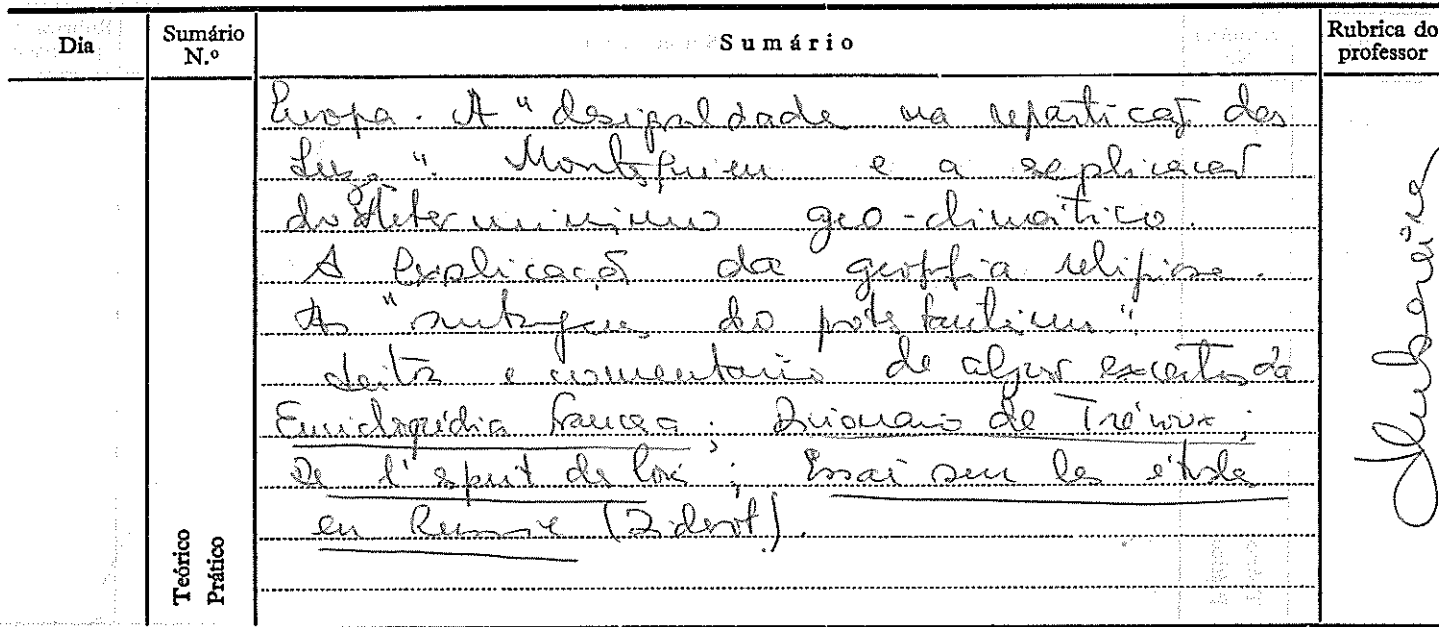 Dia
Sumário N.º
Sumário
Rubrica do professor
Europa. A "desigualdade na repartição das
Luzes". Montesquieu e a explicação
do determinismo geo-climático.
A explicação da geografia religiosa.
As "vantagens do protestantismo".
Leitura e comentário de alguns excertos da
Enciclopédia Francesa; Dicionário de Trévoux;
De l'esprit des lois; Essai sur les études
en Russie (Diderot).
Teórico
Prático